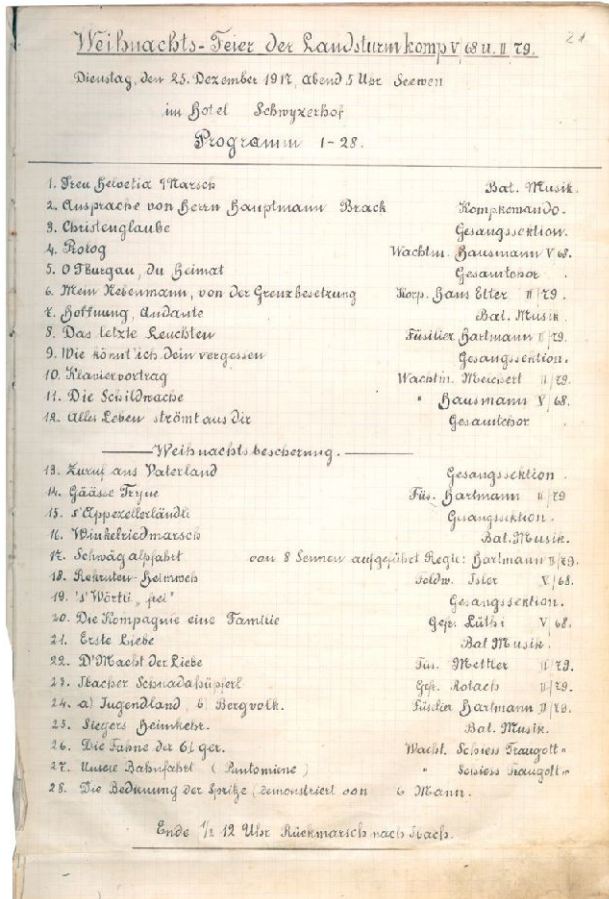 21
Weihnachts-Feier der Landsturmkomp V/68 u. II/79.
Dienstag, den 25. Dezember 1917, abend 5 Uhr Seewen
im Hotel Schwyzerhof
Programm 1-28.
1. Treu Helvetia Marsch Bat. Musik.
2. Ansprache von Herrn Hauptmann Brack Kompkomando.
3. Christenglaube Gesangssektion.
4. Prolog Wachtm. Hausmann V 68.
5. O Thurgau, du Heimat Gesamtchor.
6. Mein Nebenmann, von der Grenzbesetzung Korp. Hans Etter II/79.
7. Hoffnung, Andante Bat. Musik.
8. Das letzte Leuchten Füsilier Hartmann II/79.
9. Wie könnt ich dein vergessen Gesangssektion.
10. Klaviervortrag Wachtm. Meichert II/79.
11. Die Schildwache " Hausmann V/68.
12. Alles Leben strömt aus dir Gesamtchor
Weihnachtsbescherung.
13. Zuruf ans Vaterland Gesangssektion.
14. Gäässe Tryne Füs. Hartmann II/79
15. s'Appezellerländli Gesangssektion.
16. Winkelriedmarsch Bat. Musik.
17. Schwägalpfahrt von 8 Sennen aufgeführt Regie: Hartmann II/79.
18. Rekruten-Heimweh Soldw. Isler V/68.
19. 's' Wörtli „frei" Gesangssektion.
20. Die Kompagnie eine Familie Gefr. Lüthi V/68.
21. Erste Liebe Bat Musik.
22. D'Macht der Liebe Füs. Mettler II/79.
23. Ibacher Schnadahüpferl Gefr. Rotach II/79.
24. a) Jugendland, b) Bergvolk. Füsilier Hartmann II/79.
25. Siegers Heimkehr. Bat. Musik.
26. Die Fahne der 61 ger. Wachtl. Schiess Traugott "
27. Unsere Bahnfahrt (Pantomime) " Schiess Traugott "
28. Die Bedinung der Spritze (demonstriert von 6 Mann.
Ende 1/2 12 Uhr Rückmarsch nach Ibach.